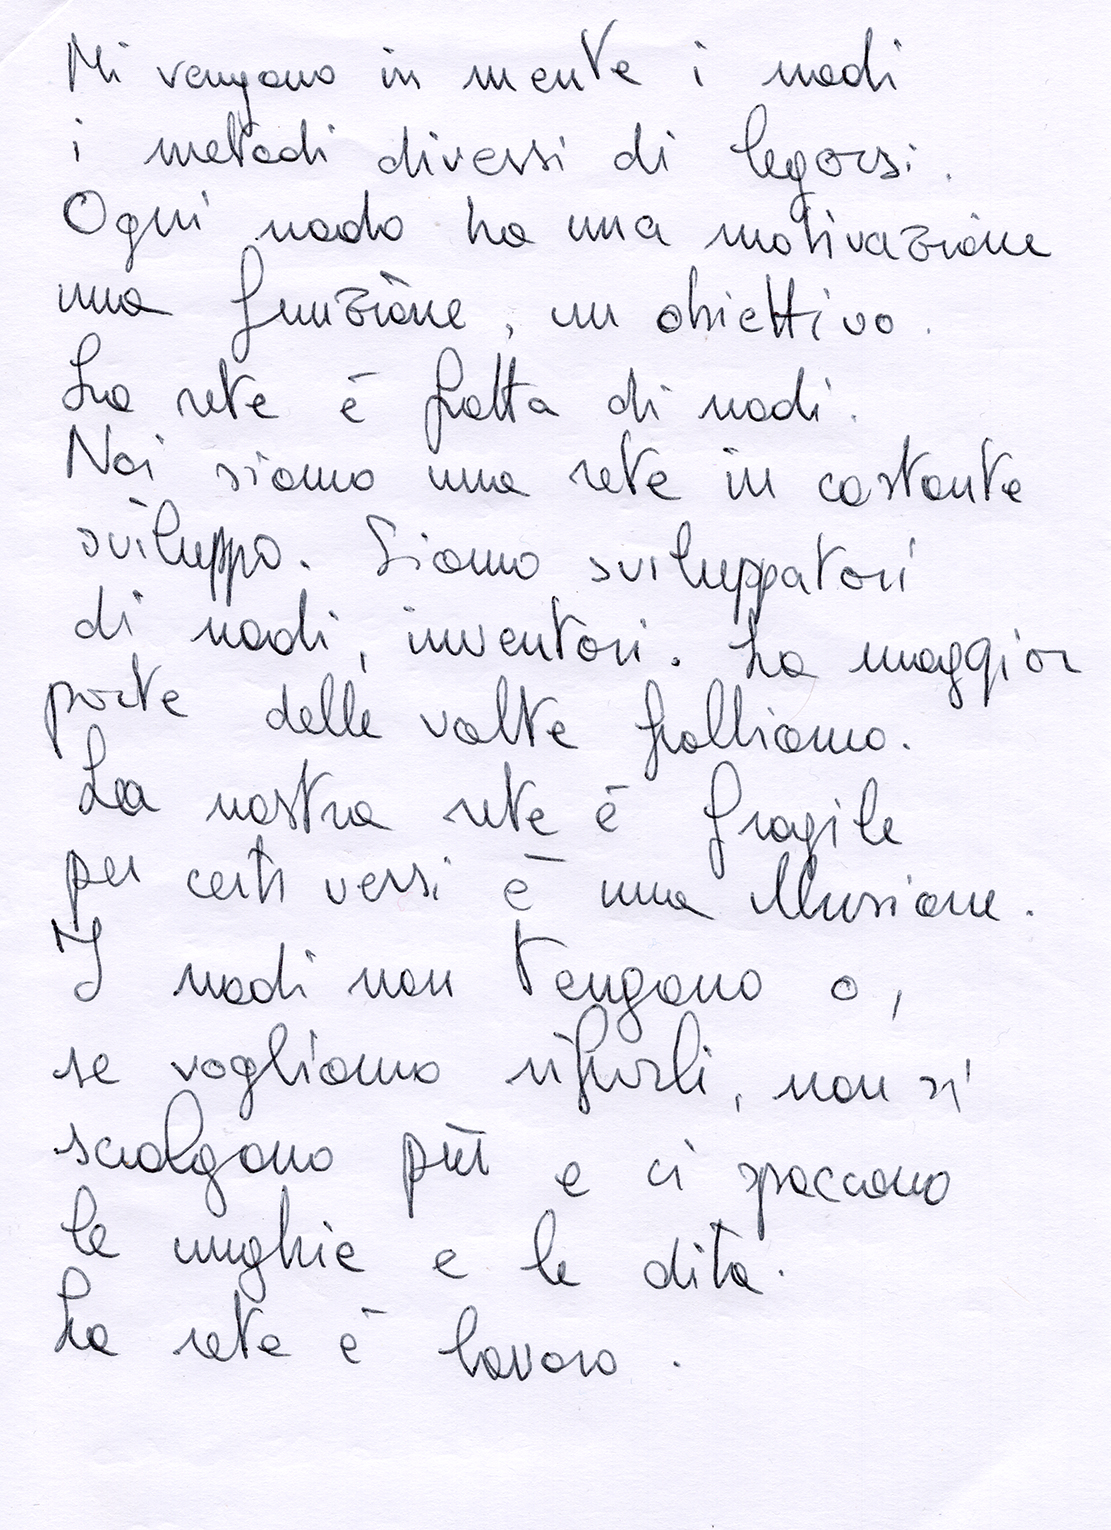 Mi vengono in mente i nodi
i metodi diversi di legarsi.
Ogni nodo ha una motivazione
una funzione, un obiettivo.
La rete è fatta di nodi.
Noi siamo una rete in costante
sviluppo. Siamo sviluppatori
di nodi, inventori. La maggior
parte delle volte falliamo.
La nostra rete è fragile
per certi versi è una illusione.
I nodi non tengono o,
se vogliamo rifarli, non si
sciolgono più e ci spaccano
le unghie e le dita.
La rete è lavoro.